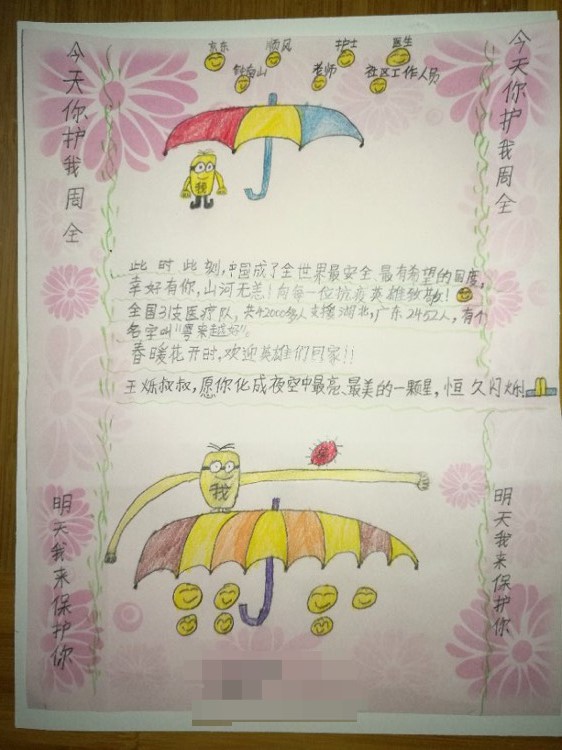 今天你护我周全
京东 顺风 护士 医生
钟南山 老师 社区工作人员
今天你护我周全
我
此时此刻,中国成了全世界最安全最有希望的国度,
幸好有你,山河无恙!向每一位抗疫英雄致敬!
全国31支医疗队,共42000多人支援湖北,广东2452人,有个
名字叫"粤来越好".
春暖花开时,欢迎英雄们回家!!
王烁叔叔,愿你化成夜空中最亮、最美的一颗星,恒久闪烁
我
明天我来保护你
明天我来保护你